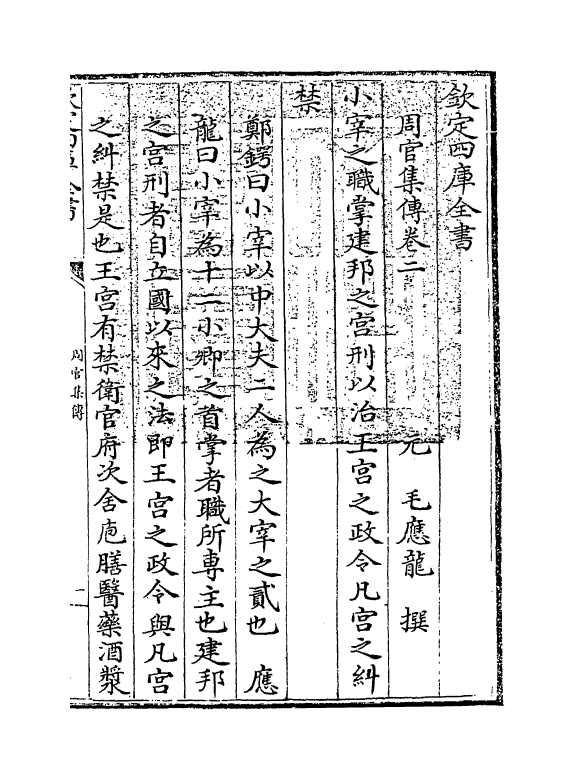 欽定四庫全書
周官集傳卷二
元　毛應龍　撰
小宰之職掌建邦之宮刑以治王宮之政令凡宮之糾
禁
鄭鍔曰小宰以中大夫二人為之大宰之貳也　應
龍曰小宰為十二小卿之首掌者職所専主也建邦
之宮刑者自立國以來之法即王宮之政令與凡宮
之糾禁是也王宮有禁衛官府次舍庖膳醫藥酒漿
欽定四庫全書
周官集傳